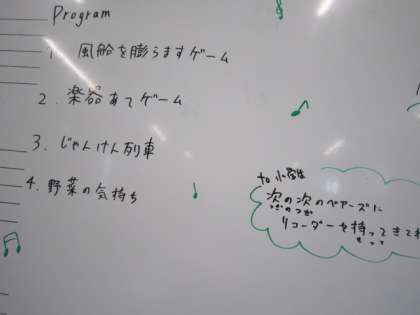 Program
1. 風船を膨らますゲーム
2. 楽器あてゲーム
3. じゃんけん列車
4. 野菜の気持ち
to 小学生
次の次のペアーズに
つぎのつぎ
リコーダーを持ってきて
もって